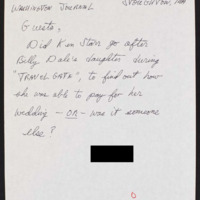 WASHINGTON JOURNAL
Guests,
Did Ken Starr go after
Billy Dale's daughter during
"TRAVEL GATE", to find out how
she was able to pay for her
wedding - OR - was it someone
else?